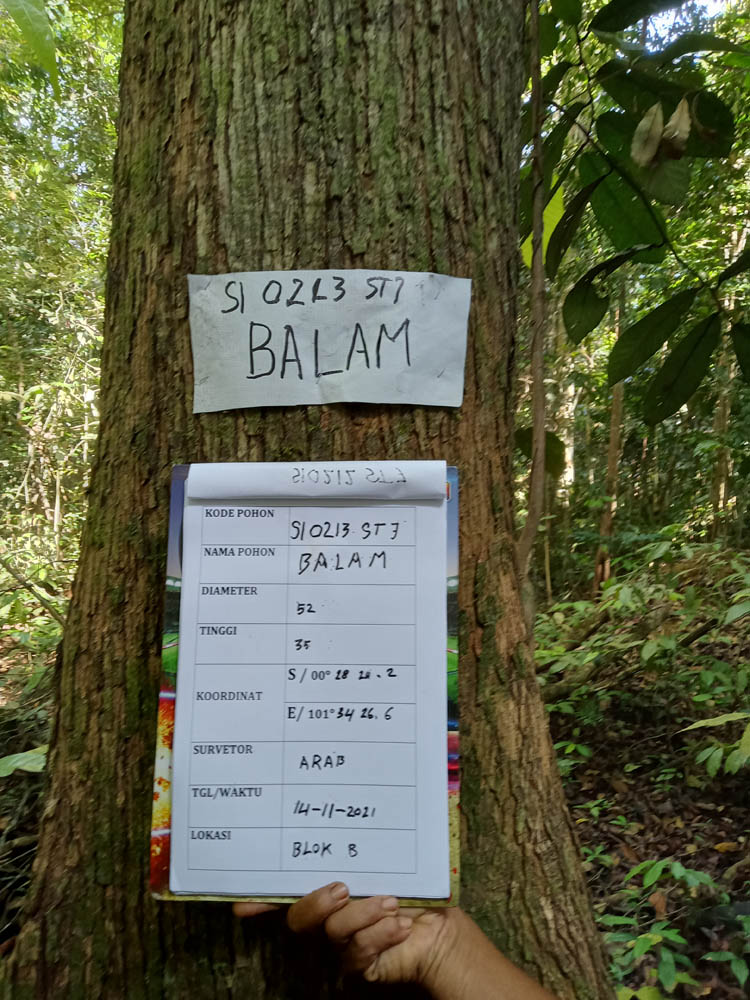 SI 0213 ST7
BALAM
KODE POHON SI 0213 ST7
NAMA POHON BALAM
DIAMETER 52
TINGGI 35
KOORDINAT
S / 00° 28 . 2
E/ 101° 34 26.6
SURVETOR ARAB
TGL/WAKTU 14-11-2021
LOKASI BLOK B